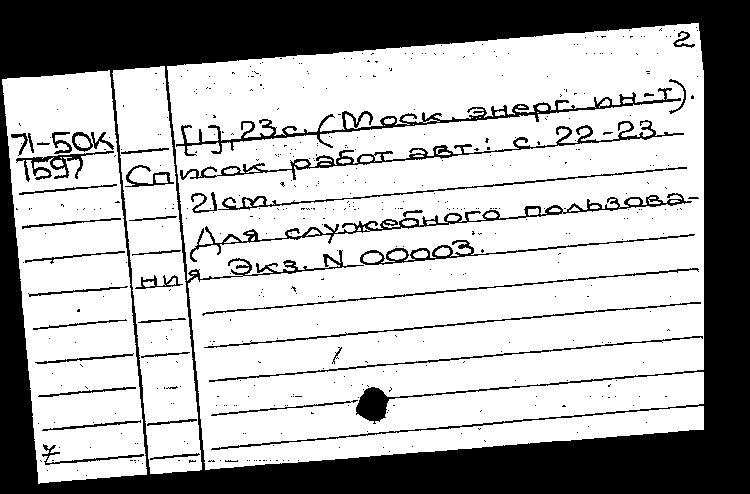 2
71-50к
1597
[1], 23с. (Моск. энерг. ин-т).
Список работ авт.: с. 22-23.
21см.
Для служебного пользова-
ния. Экз. N 00003.